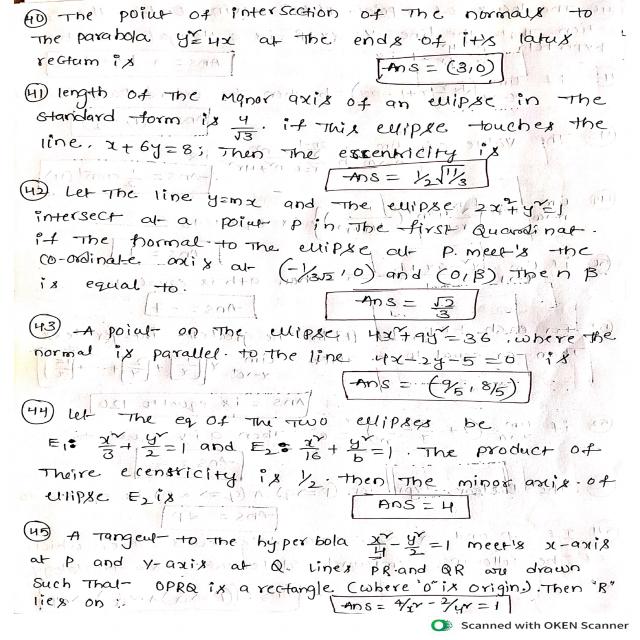 40 The point of intersection of The normals to
The parabola y²=4x at the ends of it's latus
rectum is
Ans = (3,0)
41 length of The Manor axis of an ellipse in The
standard form is 4/√3. if This ellipse touches the
line. x+6y=8; Then The essentricity is
Ans = 1/2√11/3
42. Let The line y=mx and The ellipse 2x²+y²=1
intersect at a point P in The first Quardinat.
if The normal to The ellipse at P. meet's the
co-ordinate axis at (-1/3√2, 0) and (0,β), Then β
is equal to.
Ans = √2/3
43 A point on The ellipse 4x²+9y²=36 where the
normal is parallel to the line 4x-2y-5=0 is
Ans = (-9/5, 8/5)
44 let The eq of The Two ellipses be
E1: x²/3+y²/2=1 and E2: x²/16+y²/b=1. The product of
Theire ecenstricity is 1/2. then The minor axis of
ellipse E2 is
Ans = 4
45 A Tangent to The hyperbola x²/4-y²/2=1 meet's x-axis
at P and Y-axis at Q. Lines PR and QR are drawn
Such That OPRQ is a rectangle (where "O" is origin). Then "R"
lies on :
Ans = 4/x²-2/y²=1
Scanned with OKEN Scanner